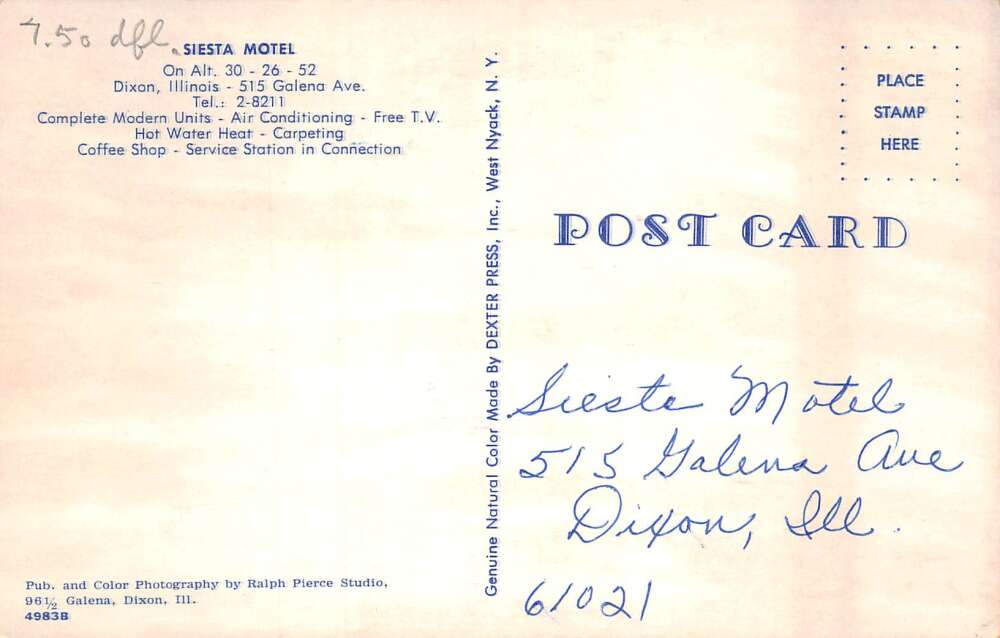 7.50 dfl.
SIESTA MOTEL
On Alt. 30 - 26 - 52
Dixon, Illinois - 515 Galena Ave.
Tel.: 2-8211
Complete Modern Units - Air Conditioning - Free T.V.
Hot Water Heat - Carpeting
Coffee Shop - Service Station in Connection
Pub. and Color Photography by Ralph Pierce Studio,
96½ Galena, Dixon, Ill.
4983B
Genuine Natural Color Made By DEXTER PRESS, Inc., West Nyack, N. Y.
PLACE
STAMP
HERE
POST CARD
Siesta Motel
515 Galena Ave
Dixon, Ill.
61021